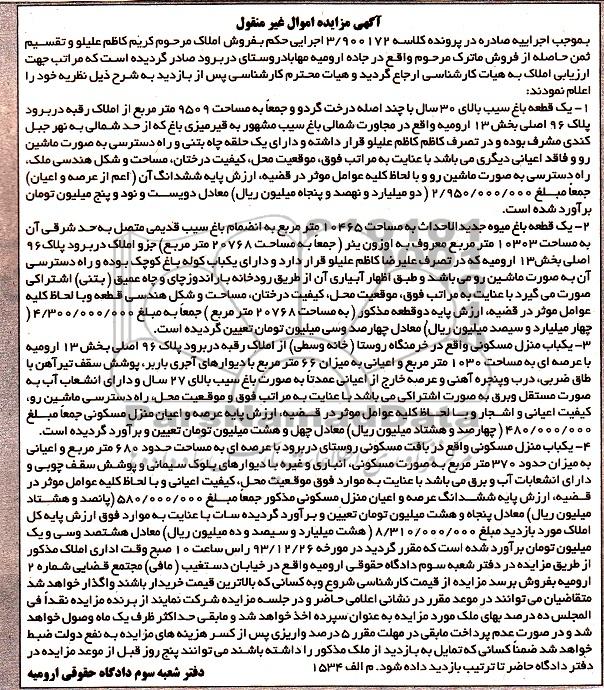 آگهی مزایده اموال غیر منقول
بموجب اجراییه صادره در پرونده کلاسه ۳/۹۰۰۱۷۲ اجرایی حکم بفروش املاک مرحوم کریم کاظم علیلو و تقسیم
ثمن حاصله از فروش ماترک مرحوم واقع در جاده ارومیه مهاباد روستای دربرود صادر گردیده است که مراتب جهت
ارزیابی املاک به هیات کارشناسی ارجاع گردید و هیات محترم کارشناسی پس از بازدید به شرح ذیل نظریه خود را
اعلام نمودند:
۱- یک قطعه باغ سیب بالای ۳۰ سال با چند اصله درخت گردو و جمعاً به مساحت ۹۵۰۹ متر مربع از املاک رقبه دربرود
پلاک ۹۶ اصلی بخش ۱۳ ارومیه واقع در مجاورت شمالی باغ سیب مشهور به قیرمیزی باغ که از حد شمالی به نهر جبل
کندی مشرف بوده و در تصرف کاظم کاظم علیلو قرار داشته و دارای یک حلقه چاه بتنی و راه دسترسی به صورت ماشین
رو و فاقد اعیانی دیگری می باشد با عنایت به مراتب فوق، موقعیت محل، کیفیت درختان، مساحت و شکل هندسی ملک،
راه دسترسی به صورت ماشین رو و با لحاظ کلیه عوامل موثر در قضیه، ارزش پایه ششدانگ آن (اعم از عرصه و اعیان)
جمعاً مبلغ ۲/۹۵۰/۰۰۰/۰۰۰ (دو میلیارد و نهصد و پنجاه میلیون ریال) معادل دویست و نود و پنج میلیون تومان
برآورد شده است.
۲- یک قطعه باغ میوه جدیدالاحداث به مساحت ۱۰۴۶۵ متر مربع به انضمام باغ سیب قدیمی متصل به حد شرقی آن
به مساحت ۱۰۳۰۳ متر مربع معروف به اوزون یئر (جمعاً به مساحت ۲۰۷۶۸ متر مربع) جزو املاک دربرود پلاک ۹۶
اصلی بخش ۱۳ ارومیه که در تصرف علیرضا کاظم علیلو قرار دارد و دارای یکباب کوله باغ کوچک بوده و راه دسترسی
آن به صورت ماشین رو می باشد و طبق اظهار آبیاری آن از طریق رودخانه باراندوزچای و چاه عمیق (بتنی) اشتراکی
صورت می گیرد با عنایت به مراتب فوق، موقعیت محل، کیفیت درختان، مساحت و شکل هندسی قطعه و با لحاظ کلیه
عوامل موثر در قضیه، ارزش پایه دو قطعه مذکور (به مساحت ۲۰۷۶۸ متر مربع) جمعاً به مبلغ ۴/۳۰۰/۰۰۰/۰۰۰ (
چهار میلیارد و سیصد میلیون ریال) معادل چهارصد و سی میلیون تومان تعیین گردیده است.
۳- یکباب منزل مسکونی واقع در خرمنگاه روستا (خانه وسطی) از املاک رقبه دربرود پلاک ۹۶ اصلی بخش ۱۳ ارومیه
با عرصه ای به مساحت ۱۰۳۰ متر مربع و اعیانی به میزان ۶۶ متر مربع با دیوارهای آجری باربر، پوشش سقف تیرآهن با
طاق ضربی، درب و پنجره آهنی و عرصه خارج از اعیانی عمدتاً به صورت باغ سیب بالای ۲۷ سال و دارای انشعاب آب به
صورت مستقل و برق به صورت اشتراکی می باشد با عنایت به مراتب فوق و موقعیت محل، راه دسترسی ماشین رو،
کیفیت اعیانی و اشجار و با لحاظ کلیه عوامل موثر در قضیه، ارزش پایه عرصه و اعیان منزل مسکونی جمعاً مبلغ
۴۸۰/۰۰۰/۰۰۰ (چهارصد و هشتاد میلیون ریال) معادل چهل و هشت میلیون تومان تعیین و برآورد گردیده است.
۴- یکباب منزل مسکونی واقع در بافت مسکونی روستای دربرود با عرصه ای به مساحت حدود ۶۸۰ متر مربع و اعیانی
به میزان حدود ۳۷۰ متر مربع به صورت مسکونی، انباری و غیره با دیوارهای بلوک سیمانی و پوشش سقف چوبی و
دارای انشعابات آب و برق می باشد با عنایت به موارد فوق موقعیت محل، کیفیت اعیانی و با لحاظ کلیه عوامل موثر در
قضیه، ارزش پایه ششدانگ عرصه و اعیان منزل مسکونی مذکور جمعاً مبلغ ۵۸۰/۰۰۰/۰۰۰ (پانصد و هشتاد
میلیون ریال) معادل پنجاه و هشت میلیون تومان تعیین و برآورد گردیده سات با عنایت به موارد فوق ارزش پایه کل
املاک مورد بازدید مبلغ ۸/۳۱۰/۰۰۰/۰۰۰ (هشت میلیارد و سیصد و ده میلیون ریال) معادل هشتصد و سی و یک
میلیون تومان برآورد شده است که مقرر گردید در مورخه ۹۳/۱۲/۲۶ راس ساعت ۱۰ صبح وقت اداری املاک مذکور
از طریق مزایده در دفتر شعبه سوم دادگاه حقوقی ارومیه واقع در خیابان دستغیب (مافی) مجتمع قضایی شماره ۲
ارومیه بفروش برسد مزایده از قیمت کارشناسی شروع و به کسانی که بالاترین قیمت خریدار باشند واگذار خواهد شد
متقاضیان می توانند در موعد مقرر در نشانی اعلامی حاضر و در جلسه مزایده شرکت نمایند از برنده مزایده نقداً فی
المجلس ده درصد بهای ملک مورد مزایده به عنوان سپرده اخذ خواهد شد و مابقی حداکثر ظرف یک ماه وصول خواهد
شد و در صورت عدم پرداخت مابقی در مهلت مقرر ۵ درصد واریزی پس از کسر هزینه های مزایده به نفع دولت ضبط
خواهد شد ضمناً کسانی که تمایل به بازدید از ملک مذکور را داشته باشند می توانند پنج روز قبل از موعد مزایده در
دفتر دادگاه حاضر تا ترتیب بازدید داده شود. م الف ۱۵۳۴
دفتر شعبه سوم دادگاه حقوقی ارومیه